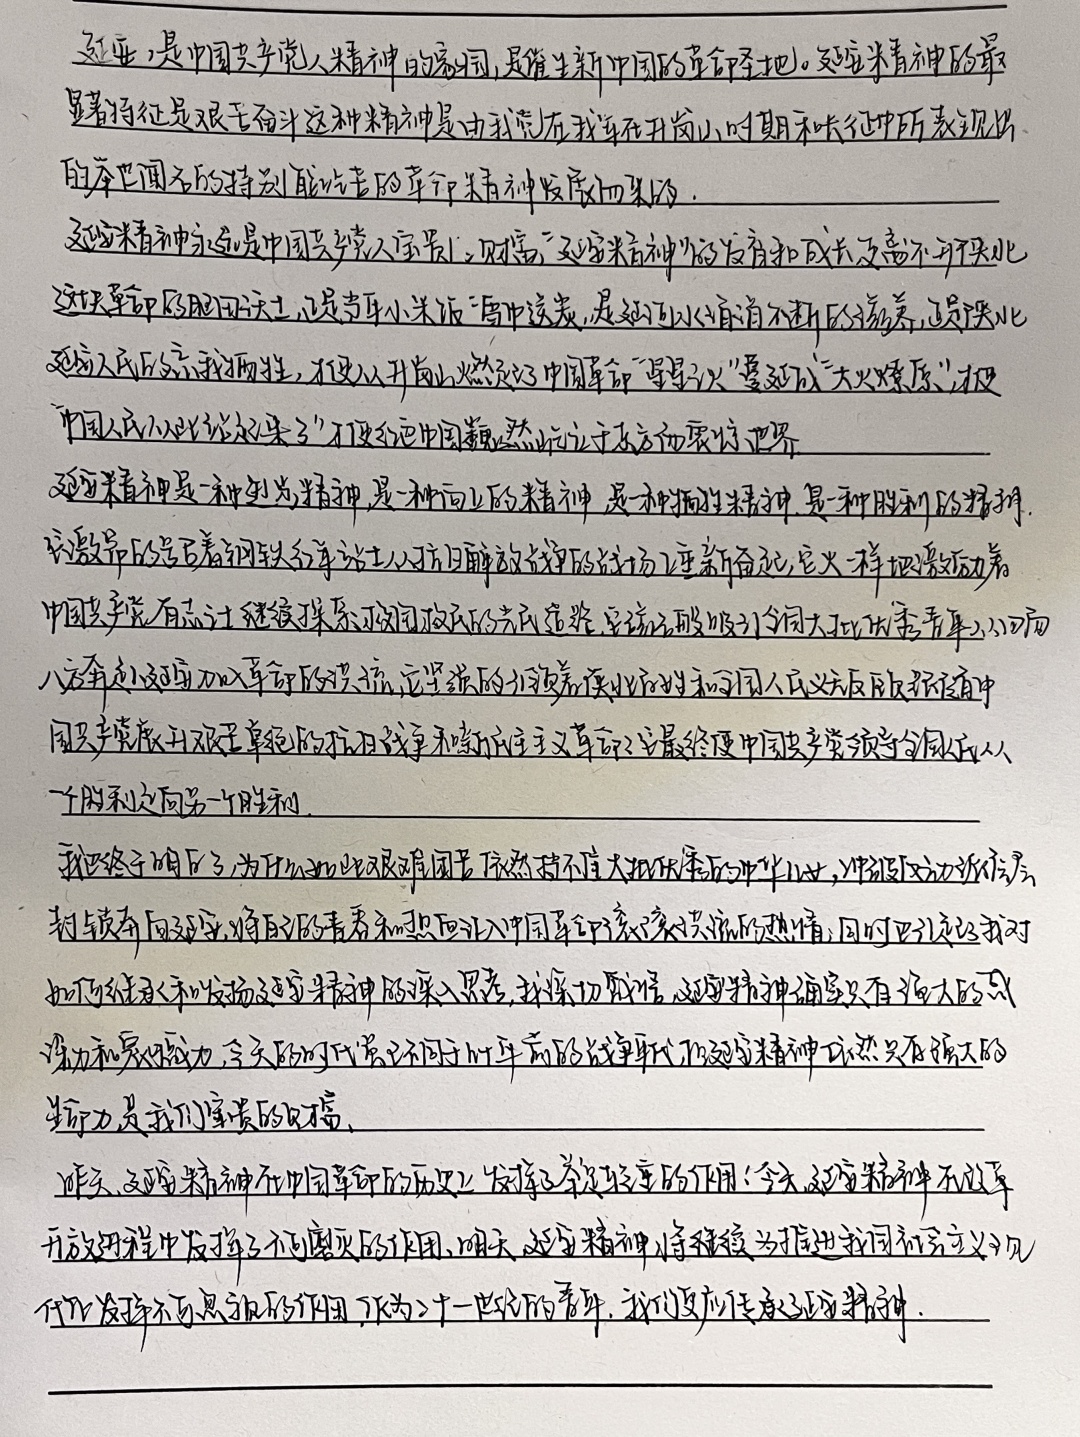 延安,是中国共产党人精神的家园,是催生新中国的革命圣地。延安精神的最
显著特征是艰苦奋斗这种精神是由我党在我军在井岗山时期和长征中所表现出
的举世闻名的特别能吃苦的革命精神发展而来的.
延安精神永远是中国共产党人宝贵的财富,"延安精神"的发育和成长更离不开陕北
这块革命的肥田沃土,正是当年小米饭 雪中送炭,是延河水涓涓不断的滋养,正是陕北
延安人民的 牺牲,才使从井岗山燃起的中国革命"星星之火"蔓延成"大火燎原",才使
"中国人民从此站起来了"才使 中国巍然屹立于东方而震惊世界
延安精神是一种 精神,是一种向上的精神 是一种牺牲精神.是一种胜利的精神.
它激昂的号召着钢铁 战士从抗日解放战争的战场上重新奋起,它火一样地激励着
中国共产党有志之士继续探索救国救民的 道路 它 吸引全国大批优秀青年从四面
八方奔赴延安加入革命的洪流,它坚强的引领着陕北百姓和全国人民义无反顾跟随中
国共产党展开艰苦卓绝的抗日战争和新民主主义革命,它最终使中国共产党领导全国人民从
一个胜利走向另一个胜利.
我也终于明白了,为什么如此艰难困苦依然挡不住大批优秀的中华儿女,冲破
封锁奔向延安,将自己的青春和热血注入中国革命滚滚洪流的热情;同时也引起了我对
如何继承和发扬延安精神的深入思考,我深切感悟,延安精神确实具有强大的感
染力和 力,今天的时代虽已不同于 年前的战争年代,但延安精神依然具有强大的
生命力,是我们宝贵的财富、
昨天、延安精神在中国革命的历史上发挥了举足轻重的作用;今天、延安精神在改革
开放进程中发挥了不可磨灭的作用、明天、延安精神将继续为推进我国社会主义现
代化发挥不可忽视的作用,作为二十一世纪的青年.我们更应传承延安精神.